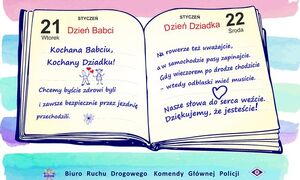 STYCZEŃ
21
Wtorek
Dzień Babci
Kochana Babciu,
Kochany Dziadku!
Chcemy byście zdrowi byli
i zawsze bezpiecznie przez jezdnię
przechodzili.
STYCZEŃ
Dzień Dziadka
22
Środa
Na rowerze też uważajcie,
a w samochodzie pasy zapinajcie.
Gdy wieczorem po drodze chodzicie
- wtedy odblaski mieć musicie.
Nasze słowa do serca weźcie.
Dziękujemy, że jesteście!
Biuro Ruchu Drogowego Komendy Głównej Policji